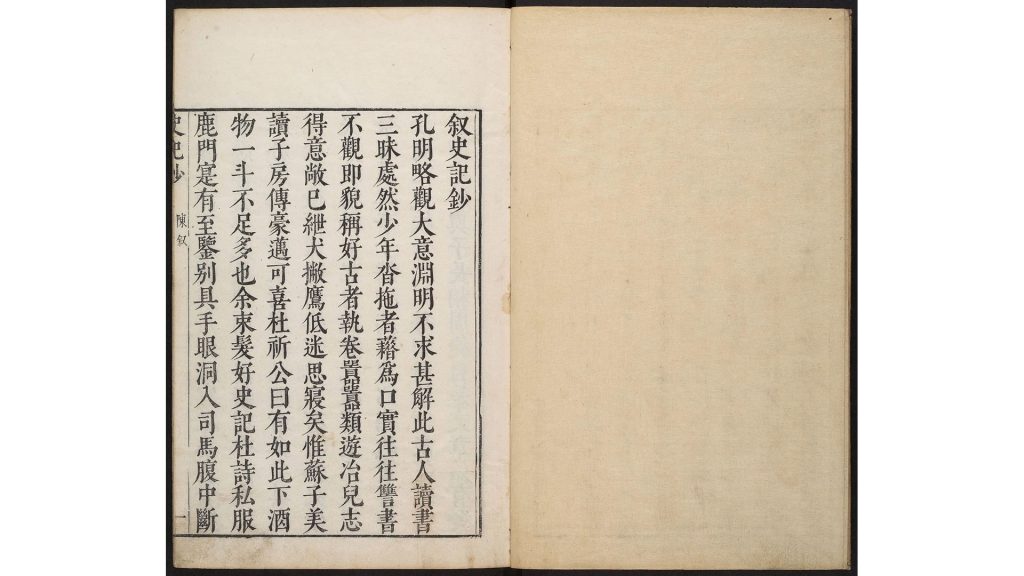 叙史記鈔
孔明略觀大意淵明不求甚解此古人讀書
三昧處然少年沓拖者藉爲口實往往讐書
不觀即貌稱好古者執卷囂囂類遊冶兒志
得意敞已紲犬撇鷹低迷思寢矣惟蘇子美
讀子房傳豪邁可喜杜祈公曰有如此下酒
物一斗不足多也余束髮好史記杜詩私服
鹿門寔有至鑒别具手眼洞入司馬腹中斷
史記鈔
陳叙
一